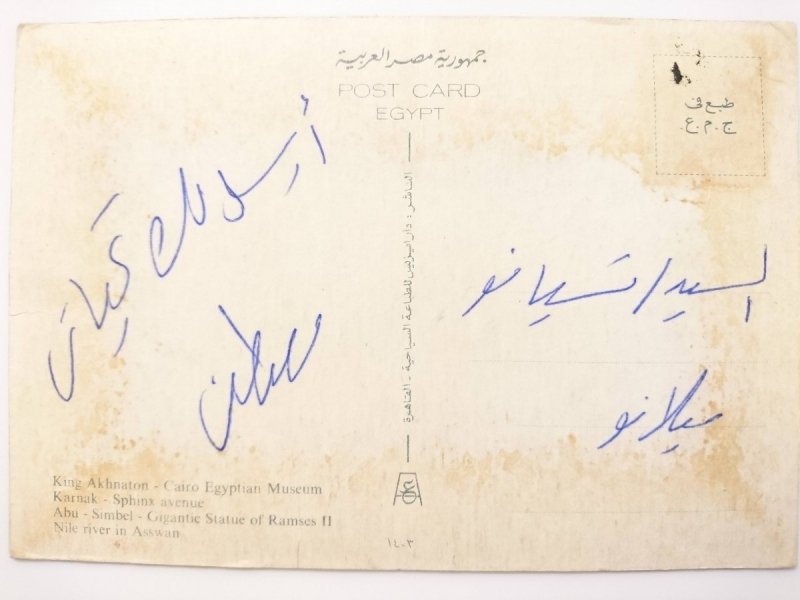 جمهورية مصر العربية
POST CARD
EGYPT
طبع فى
ج.م.ع.
أرسل لك تحياتى
السيد
ميلانو
الناشر: دار ايزيس للطباعة السياحية - القاهرة
King Akhnaton - Cairo Egyptian Museum
Karnak - Sphinx avenue
Abu - Simbel - Gigantic Statue of Ramses II
Nile river in Asswan
١٤-٣